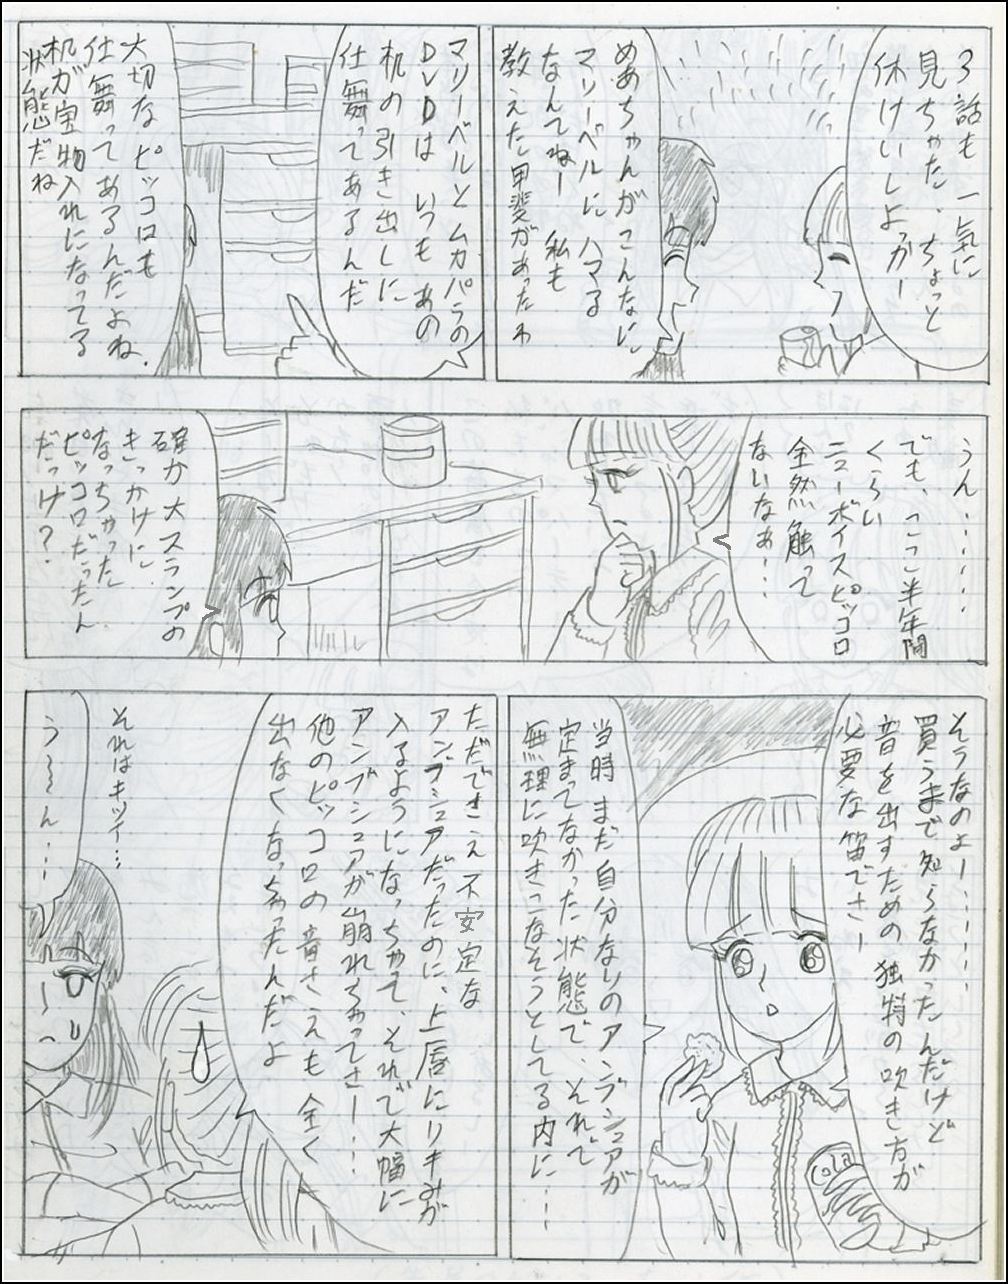 3話も一気に
見ちゃた、ちょっと
休けいしよっかー
めあちゃんがこんなに
マリーベルに ハマる
なんてねー 私も
教えた甲斐があったわ
マリーベルと ムカパラの
DVDは いつも あの
机の引き出しに
仕舞ってあるんだ
大切な ピッコロも
仕舞ってあるんだよね、
机が宝物入れになってる
状態だね
うん‥‥‥
でも、ここ半年間
くらい
ニューボイスピッコロ
全然触って
ないなぁ‥‥
確か大スランプの
きっかけに
なっちゃった
ピッコロだったん
だっけ?
そうなのよー‥‥‥
買うまで知らなかったんだけど
音を出すための 独特の吹き方が
必要な笛でさー
当時まだ自分なりのアンブシュアが
定まってなかった状態で、それで
無理に吹きこなそうとしてる内に‥‥
cola
ただでさえ不安定な
アンブシュアだったのに、上唇にリキみが
入るようになっちゃて、それで大幅に
アンブシュアが崩れちゃってさー‥‥
他のピッコロの 音さえも 全く
出なくなっちゃったんだよ
それはキツイ‥‥
う〜〜ん‥‥